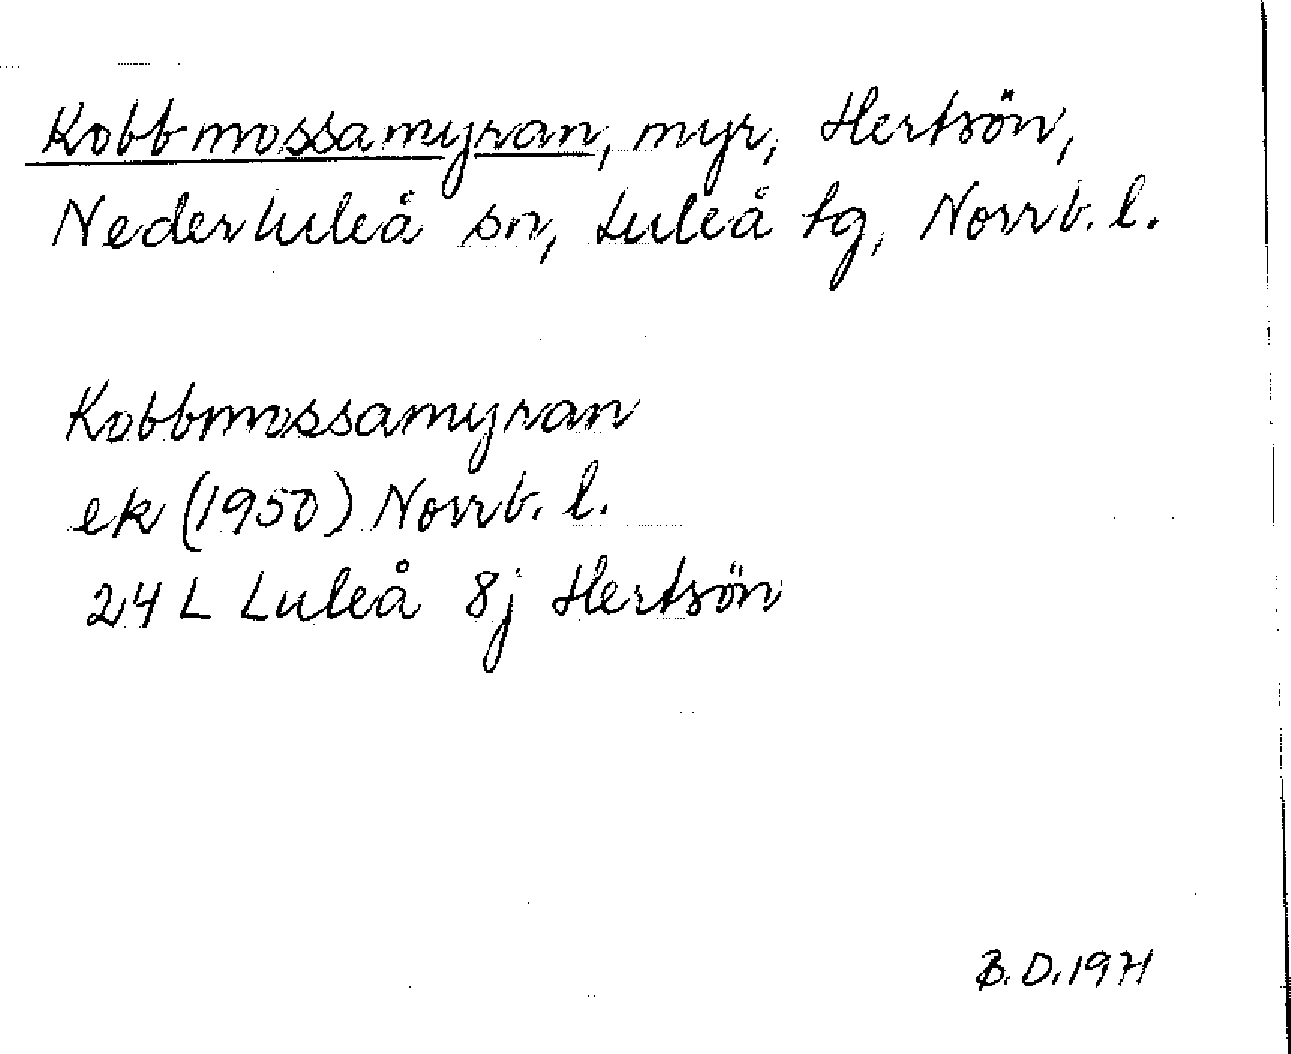 Kobbmossamyran, myr, Hertsön,
Nederluleå sn, Luleå tg, Norrb. l.
Kobbmossamyran
ek (1950) Norrb. l.
24 L Luleå 8j Hertsön
B.D.1971